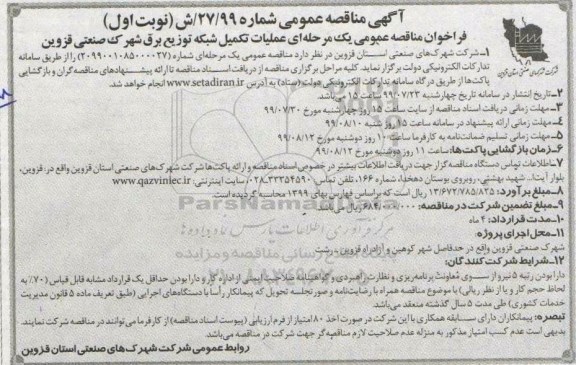 آگهی مناقصه عمومی شماره ۲۷/۹۹/ش (نوبت اول)
فراخوان مناقصه عمومی یک مرحله‌ای عملیات تکمیل شبکه توزیع برق شهرک صنعتی قزوین
۱-شرکت شهرک‌های صنعتی استان قزوین در نظر دارد مناقصه عمومی یک مرحله‌ای شماره (۲۰۹۹۰۰۱۰۸۵۰۰۰۰۲۷) را از طریق سامانه
تدارکات الکترونیکی دولت برگزار نماید. کلیه مراحل برگزاری مناقصه از دریافت اسناد مناقصه تا ارائه پیشنهادهای مناقصه‌گران و بازگشایی
پاکت‌ها از طریق درگاه سامانه تدارکات الکترونیکی دولت (ستاد) به آدرس www.setadiran.ir انجام خواهد شد.
۲-تاریخ انتشار در سامانه تاریخ چهارشنبه ۹۹/۰۷/۲۳ ساعت ۱۵ می‌باشد.
۳-مهلت زمانی دریافت اسناد مناقصه از سایت ساعت ۱۵ روز چهارشنبه مورخ ۹۹/۰۷/۳۰
۴-مهلت زمانی ارائه پیشنهاد در سامانه ساعت ۱۵ روز شنبه ۹۹/۰۸/۱۰
۵-مهلت زمانی تسلیم ضمانت‌نامه به کارفرما ساعت ۱۰ روز دوشنبه مورخ ۹۹/۰۸/۱۲
۶-زمان بازگشایی پاکت‌ها: ساعت ۱۱ روز دوشنبه مورخ ۹۹/۰۸/۱۲
۷-اطلاعات تماس دستگاه مناقصه گزار جهت دریافت اطلاعات بیشتر در خصوص اسناد مناقصه و ارائه پاکت‌ها شرکت شهرک‌های صنعتی استان قزوین واقع در: قزوین،
بلوار آیت‌ا... شهید بهشتی، روبروی بوستان دهخدا، شماره ۱۶۶، تلفن تماس: ۰۲۸-۳۳۳۵۴۵۹۰، سایت اینترنتی: www.qazviniec.ir
۸-مبلغ برآورد: ۱۳/۶۷۲/۷۸۵/۸۳۵ ریال است که براساس فهارس بهای ۱۳۹۹ محاسبه گردیده است.
۹-مبلغ تضمین شرکت در مناقصه: ۰۰۰/۰۰۰ ریال می‌باشد.
۱۰-مدت قرارداد: ۴ ماه
۱۱-محل اجرای پروژه:
شهرک صنعتی قزوین واقع در حدفاصل شهر کوهین و آزادراه قزوین - رشت
۱۲-شرایط شرکت کنندگان:
دارا بودن رتبه ۵ نیرو از سوی معاونت برنامه‌ریزی و نظارت راهبردی و گواهینامه صلاحیت ایمنی از اداره کار و دارا بودن حداقل یک قرارداد مشابه قابل قیاس (۷۰٪ به
لحاظ حجم کار و یا از نظر ریالی) با موضوع مناقصه همراه با رضایت‌نامه و صورتجلسه تحویل که پیمانکار رأساً با دستگاه‌های اجرایی (طبق تعریف ماده ۵ قانون مدیریت
خدمات کشوری) طی مدت ۵ سال گذشته منعقد می‌باشد.
تبصره: پیمانکاران دارای سابقه همکاری با این شرکت در صورت اخذ ۸۰ امتیاز از فرم ارزیابی (پیوست اسناد مناقصه) از کارفرما می‌توانند در مناقصه شرکت نمایند.
بدیهی است عدم کسب امتیاز مذکور به منزله عدم صلاحیت لازم مناقصه‌گر جهت شرکت در مناقصه می‌باشد.
روابط عمومی شرکت شهرک‌های صنعتی استان قزوین